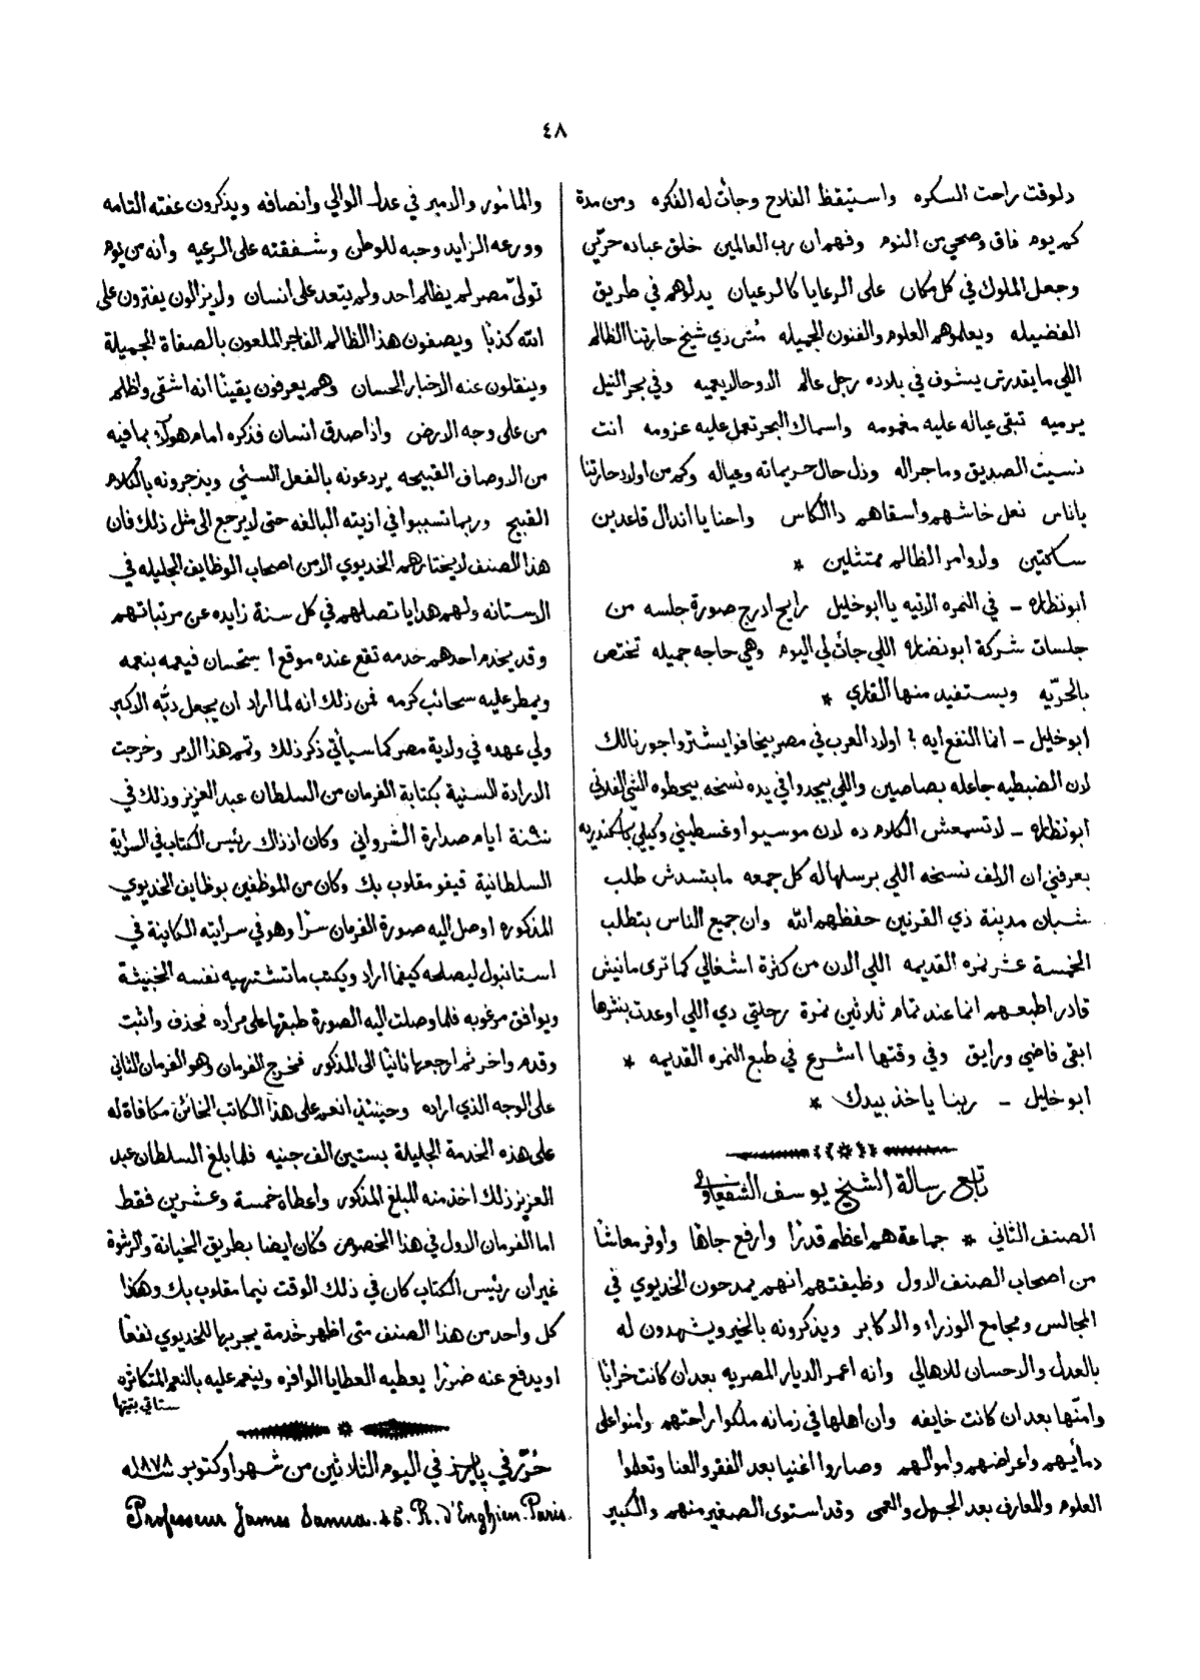 ٤٨
دلوقت راحت السكره واستيقظ الفلاح وجأت له الفكره ومن مدة
كم يوم فاق وصحي من النوم وفهم ان رب العالمين خلق عباده حرّين
وجعل الملوك في كل مكان على الرعايا كالرعيان يدلوهم في طريق
الفضيله ويعلموهم العلوم والفنون الجميله مُش زي شيخ حارتنا الظالم
اللي ما يقدرش يشوف في بلاده رجل عالم الا وحالا يعميه وفي بحر النيل
يرميه تبقى عياله عليه مغمومه واسماك البحر تعمل عليه عزومه انت
نسيت الصديق وما جراله وذل حال حريماته وعياله وكم من اولاد حارتنا
ياناس نعل خاشهم واسقاهم دا الكاس واحنا يا اندال قاعدين
ساكتين ولاوامر الظالم ممتثلين *
ابونظاره – في النمره الاتيه يا ابوخليل رايح ادرج صورة جلسه من
جلسات شركة ابونضاره اللي جأت لي اليوم وهي حاجه جميله تختص
بالحرّيه ويستفيد منها القاري *
ابوخليل – انما النفع ايه ؟ اولاد العرب في مصر بيخافوا يشتروا جورنالك
لان الضبطيه جاعله بصاصين واللي بيجدوا في يده نسخه بيحطوه الشي الفلاني
ابونظاره – لا تسمعش الكلام ده لان موسيو اوغسطيني وكيلي باسكندريه
بعرفني ان الالف نسخه اللي برسلها له كل جمعه ما بتسدش طلب
شبان مدينة ذي القرنين حفظهم الله وان جميع الناس بتطلب
الخمسة عشر نمره القديمه اللي الان من كثرة اشغالي كما ترى مانيش
قادر اطبعهم انما عند تمام ثلاثين نمرة رحلتي دي اللي اوعدت بنشرها
ابقى فاضي ورايق وفي وقتها اشرع في طبع النمره القديمه *
ابوخليل – ربنا ياخذ بيدك *
تابع رسالة الشيخ يوسف الشفعاوي
الصنف الثاني * جماعة هم اعظم قدرًا وارفع جاهًا واوفر معاشًا
من اصحاب الصنف الاول وظيفتهم انهم يمدحون الخديوي في
المجالس ومجامع الوزراء والاكابر ويذكرونه بالخير ويشهدون له
بالعدل والاحسان للاهالي وانه اعمر الديار المصريه بعد ان كانت خرابًا
وامنّها بعد ان كانت خايفه وان اهلها في زمانه ملكوا راحتهم وامنوا على
دمأيهم واعراضهم واموالهم وصاروا اغنيا بعد الفقر والعنا وتعلموا
العلوم والمعارف بعد الجهل والعمى وقد استوى الصغير منهم والكبير
والمأمور والامير في عدل الوالي وانصافه ويذكرون عفته التامه
وورعه الزايد وحبه للوطن وشفقته على الرعيه وانه من يوم
تولىّ مصر لم يظلم احد ولم يتعد على انسان ولا يزالون يفترون على
الله كذبًا ويصفون هذا الظالم الفاجر الملعون بالصفاة الجميلة
وينقلون عنه الاخبار الحسان وهم يعرفون يقينًا انه اشقى واظلم
من على وجه الارض واذا صدق انسان فذكره امام هولاء بما فيه
من الاوصاف القبيحه يردعونه بالفعل السئي ويزجرونه بالكلام
القبيح وربما تسببوا في اذيته البالغه حتى لا يرجع الى مثل ذلك فان
هذا الصنف لا يختارهم الخديوي الا من اصحاب الوظايف الجليله في
الاستانه ولهم هدايا تصلهم في كل سنة زايده عن مرتباتهم
وقد يخدم احدهم خدمه تقع عنده موقع استحسان فيعمه بنعمه
ويمطر عليه سحائب كرمه فمن ذلك انه لما اراد ان يجعل دبّه الاكبر
ولي عهده في ولاية مصر كما سيأتي ذكر ذلك وتم هذا الامر وخرجت
الارادة السنية بكتابة الفرمان من السلطان عبد العزيز وذلك في
سنة ايام صدارة الشرواني وكان اذذاك رئيس الكتاب في السراية
السلطانية قيفو مقلوب بك وكان من الموظفين بوظايف الخديوي
المذكوره اوصل اليه صورة الفرمان سرًا وهو في سرايته الكاينة في
استانبول ليصلحه كيفما اراد ويكتب ما تشتهيه نفسه الخبيثة
ويوافق مرغوبه فلما وصلت اليه الصورة طبقها على مرأده فحذف واثبت
وقدم واخر ثم ارجعها ثانيًا الى المذكور فخرج الفرمان وهو الفرمان الثاني
على الوجه الذي اراده وحينئذ انعم على هذا الكاتب الخائن مكافاة له
على هذه الخدمة الجليلة بستين الف جنيه فلما بلغ السلطان عبد
العزيز ذلك اخذ منه المبلغ المذكور واعطاه خمسة وعشرين فقط
اما الفرمان الاول في هذا الخصوص فكان ايضا بطريق الخيانة والرشوة
غير ان رئيس الكتاب كان في ذلك الوقت نيما مقلوب بك وهكذا
كل واحد من هذا الصنف متى اظهر خدمة يجربها للخديوي نفعًا
او يدفع عنه ضررًا يعطيه العطايا الوافره وينعم عليه بالنعم المتكاثره
ستأتي بقيتها
حُرّر في پاريز في اليوم الثلاثين من شهر اوكتوبر سنة ١٨٧٨
Professeur James Sanua. 45. R. d'Enghien. Paris.